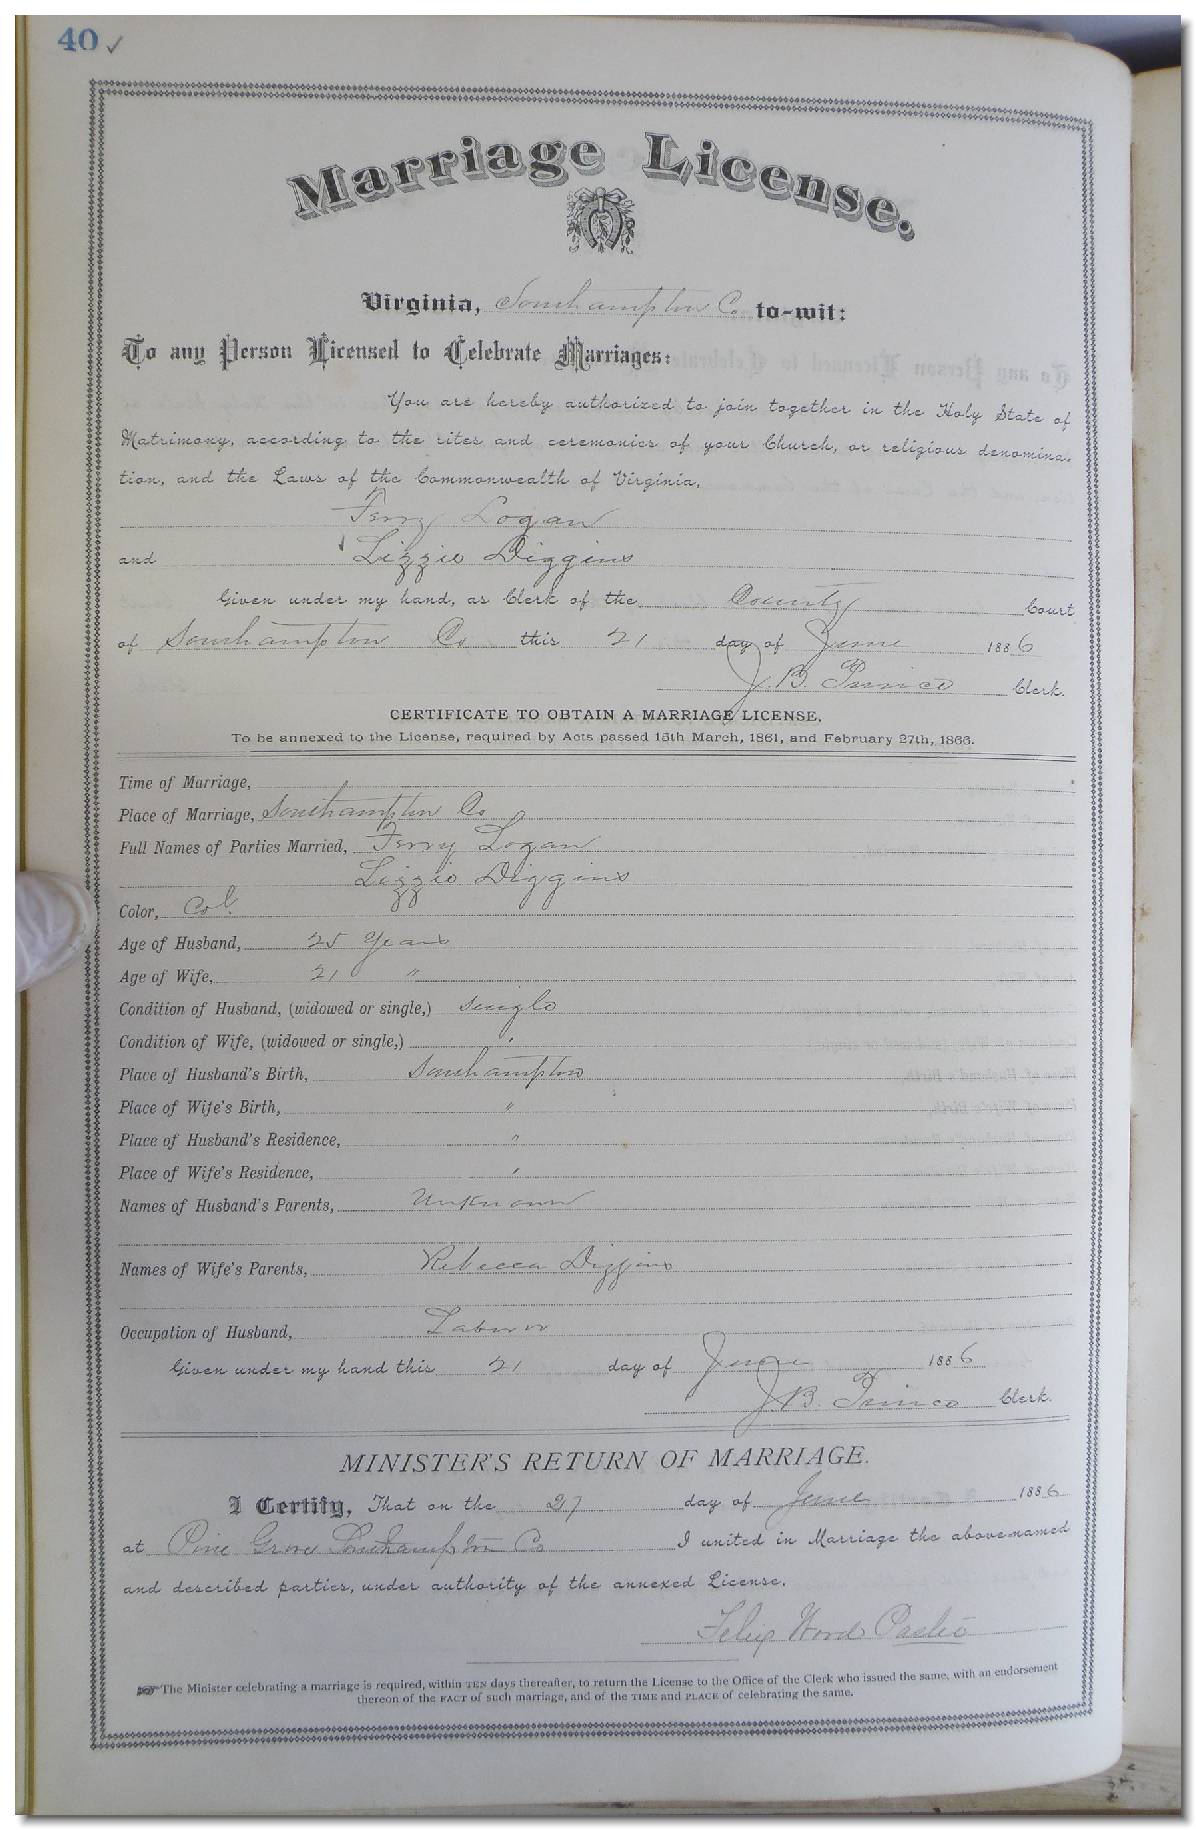 40 ✓
Marriage License.
Virginia, Southampton Co to-wit:
To any Person Licensed to Celebrate Marriages:
You are hereby authorized to join together in the Holy State of
Matrimony, according to the rites and ceremonies of your Church, or religious denomina-
tion, and the Laws of the Commonwealth of Virginia,
Terry Logan
and Lizzie Diggins
Given under my hand, as Clerk of the County Court
of Southampton Co this 21 day of June 1886
J. B. Prince Clerk.
CERTIFICATE TO OBTAIN A MARRIAGE LICENSE,
To be annexed to the License, required by Acts passed 15th March, 1861, and February 27th, 1866.
Time of Marriage,
Place of Marriage, Southampton Co
Full Names of Parties Married, Terry Logan
Lizzie Diggins
Color, Col.
Age of Husband, 25 Years
Age of Wife, 21 "
Condition of Husband, (widowed or single,) single
Condition of Wife, (widowed or single,) "
Place of Husband's Birth, Southampton
Place of Wife's Birth, "
Place of Husband's Residence, "
Place of Wife's Residence, "
Names of Husband's Parents, Unknown
Names of Wife's Parents, Rebecca Diggins
Occupation of Husband, Laborer
Given under my hand this 21 day of June 1886
J. B. Prince Clerk.
MINISTER'S RETURN OF MARRIAGE.
I Certify, That on the 27 day of June 1886
at Pine Grove Southampton Co I united in Marriage the above-named
and described parties, under authority of the annexed License.
Felix Word Pastor
The Minister celebrating a marriage is required, within TEN days thereafter, to return the License to the Office of the Clerk who issued the same, with an endorsement
thereon of the FACT of such marriage, and of the TIME and PLACE of celebrating the same.